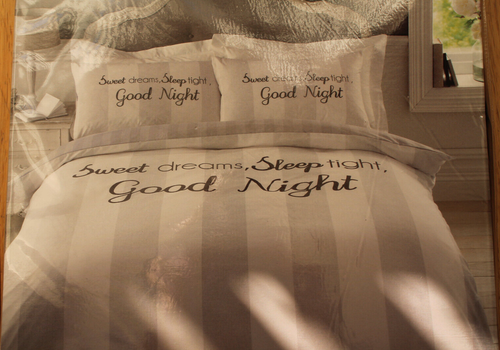 Sweet dreams, Sleep tight,
Good Night
Sweet dreams, Sleep tight,
Good Night
Sweet dreams, Sleep tight,
Good Night